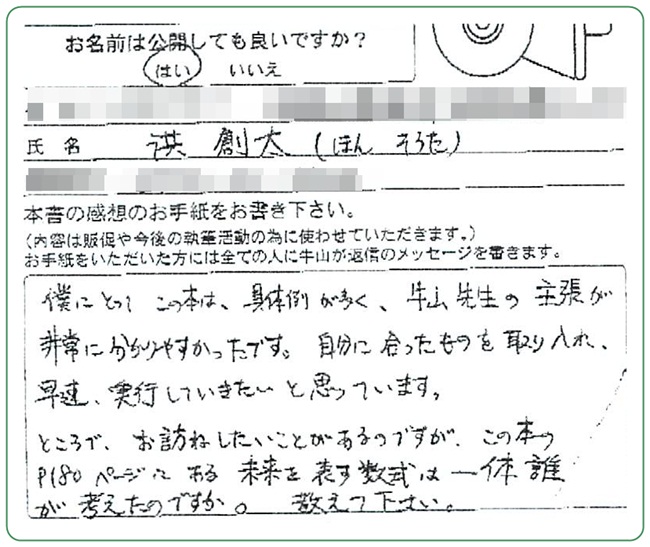 お名前は公開しても良いですか？
はい いいえ
氏 名 洪 創太 (ほん そうた)
本書の感想のお手紙をお書き下さい。
（内容は販促や今後の執筆活動の為に使わせていただきます。）
お手紙をいただいた方には全ての人に牛山が返信のメッセージを書きます。
僕にとって この本は、具体例が多く、牛山先生の主張が
非常に分かりやすかったです。自分に合ったものを取り入れ、
早速、実行していきたいと思っています。
ところで、お訪ねしたいことがあるのですが、この本の
P180ページにある未来を表す数式は一体誰
が考えたのですか。 教えて下さい。